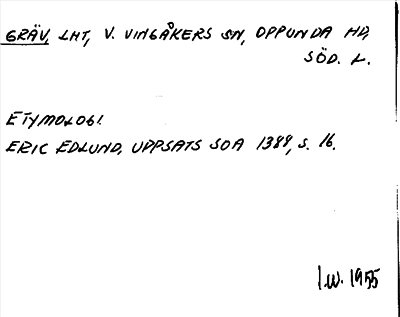 GRÄV, LHT, V. VINGÅKERS SN, OPPUNDA HD,
SÖD. L.
ETYMOLOGI.
ERIC EDLUND, UPPSATS SOA 1388, S. 16.
I.W. 1955